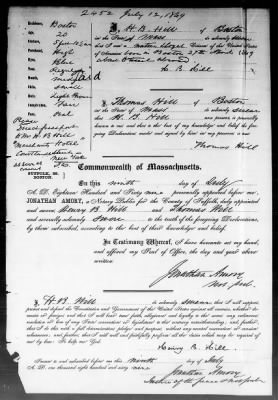 2452 July 12, 1869
Boston
20
High
Blue
Regular
Small
Light Brown
Fair
Oval
Please
send passport
to Mr H B Hill
Merchants Hotel
New York
I, H. B. Hill of Boston
in the State of Mass
do
am a Native Citizen of the United States
of America born in Boston
H. B. Hill
I, Thomas Hill of Boston
in the State of Mass do solemnly swear
that H. B. Hill
Declaration made and signed by him in my presence is true
Thomas Hill
Commonwealth of Massachusetts.
SUFFOLK, SS.
BOSTON.
On this ninth day of July
A. D. Eighteen Hundred and Sixty nine personally appeared before me,
JONATHAN AMORY, a Notary Public for the County of Suffolk, duly appointed
and sworn, Henry B. Hill and Thomas Hill
and severally Swore to the truth of the foregoing Declarations,
by them subscribed, according to the best of their knowledge and belief.
In Testimony Whereof, I have hereunto set my hand,
and affixed my Seal of Office, the day and year above
written.
Jonathan Amory
Not. pub.
I, H B. Hill do solemnly swear that I will support,
protect and defend the Constitution and Government of the United States against all enemies, whether do-
mestic or foreign; and that I will bear true faith, allegiance and loyalty to the same, any ordinance,
resolution or law of any State convention or legislature to the contrary notwithstanding; and further,
that I do this with a full determination, pledge and purpose, without any mental reservation or evasion
whatsoever; and further, that I will well and faithfully perform all the duties which may be required of
me by law: So help me God.
Henry B. Hill
Sworn to and subscribed before me this Ninth day of July
A. D. one thousand eight hundred and sixty nine
Jonathan Amory
Justice of the peace & not. pub.